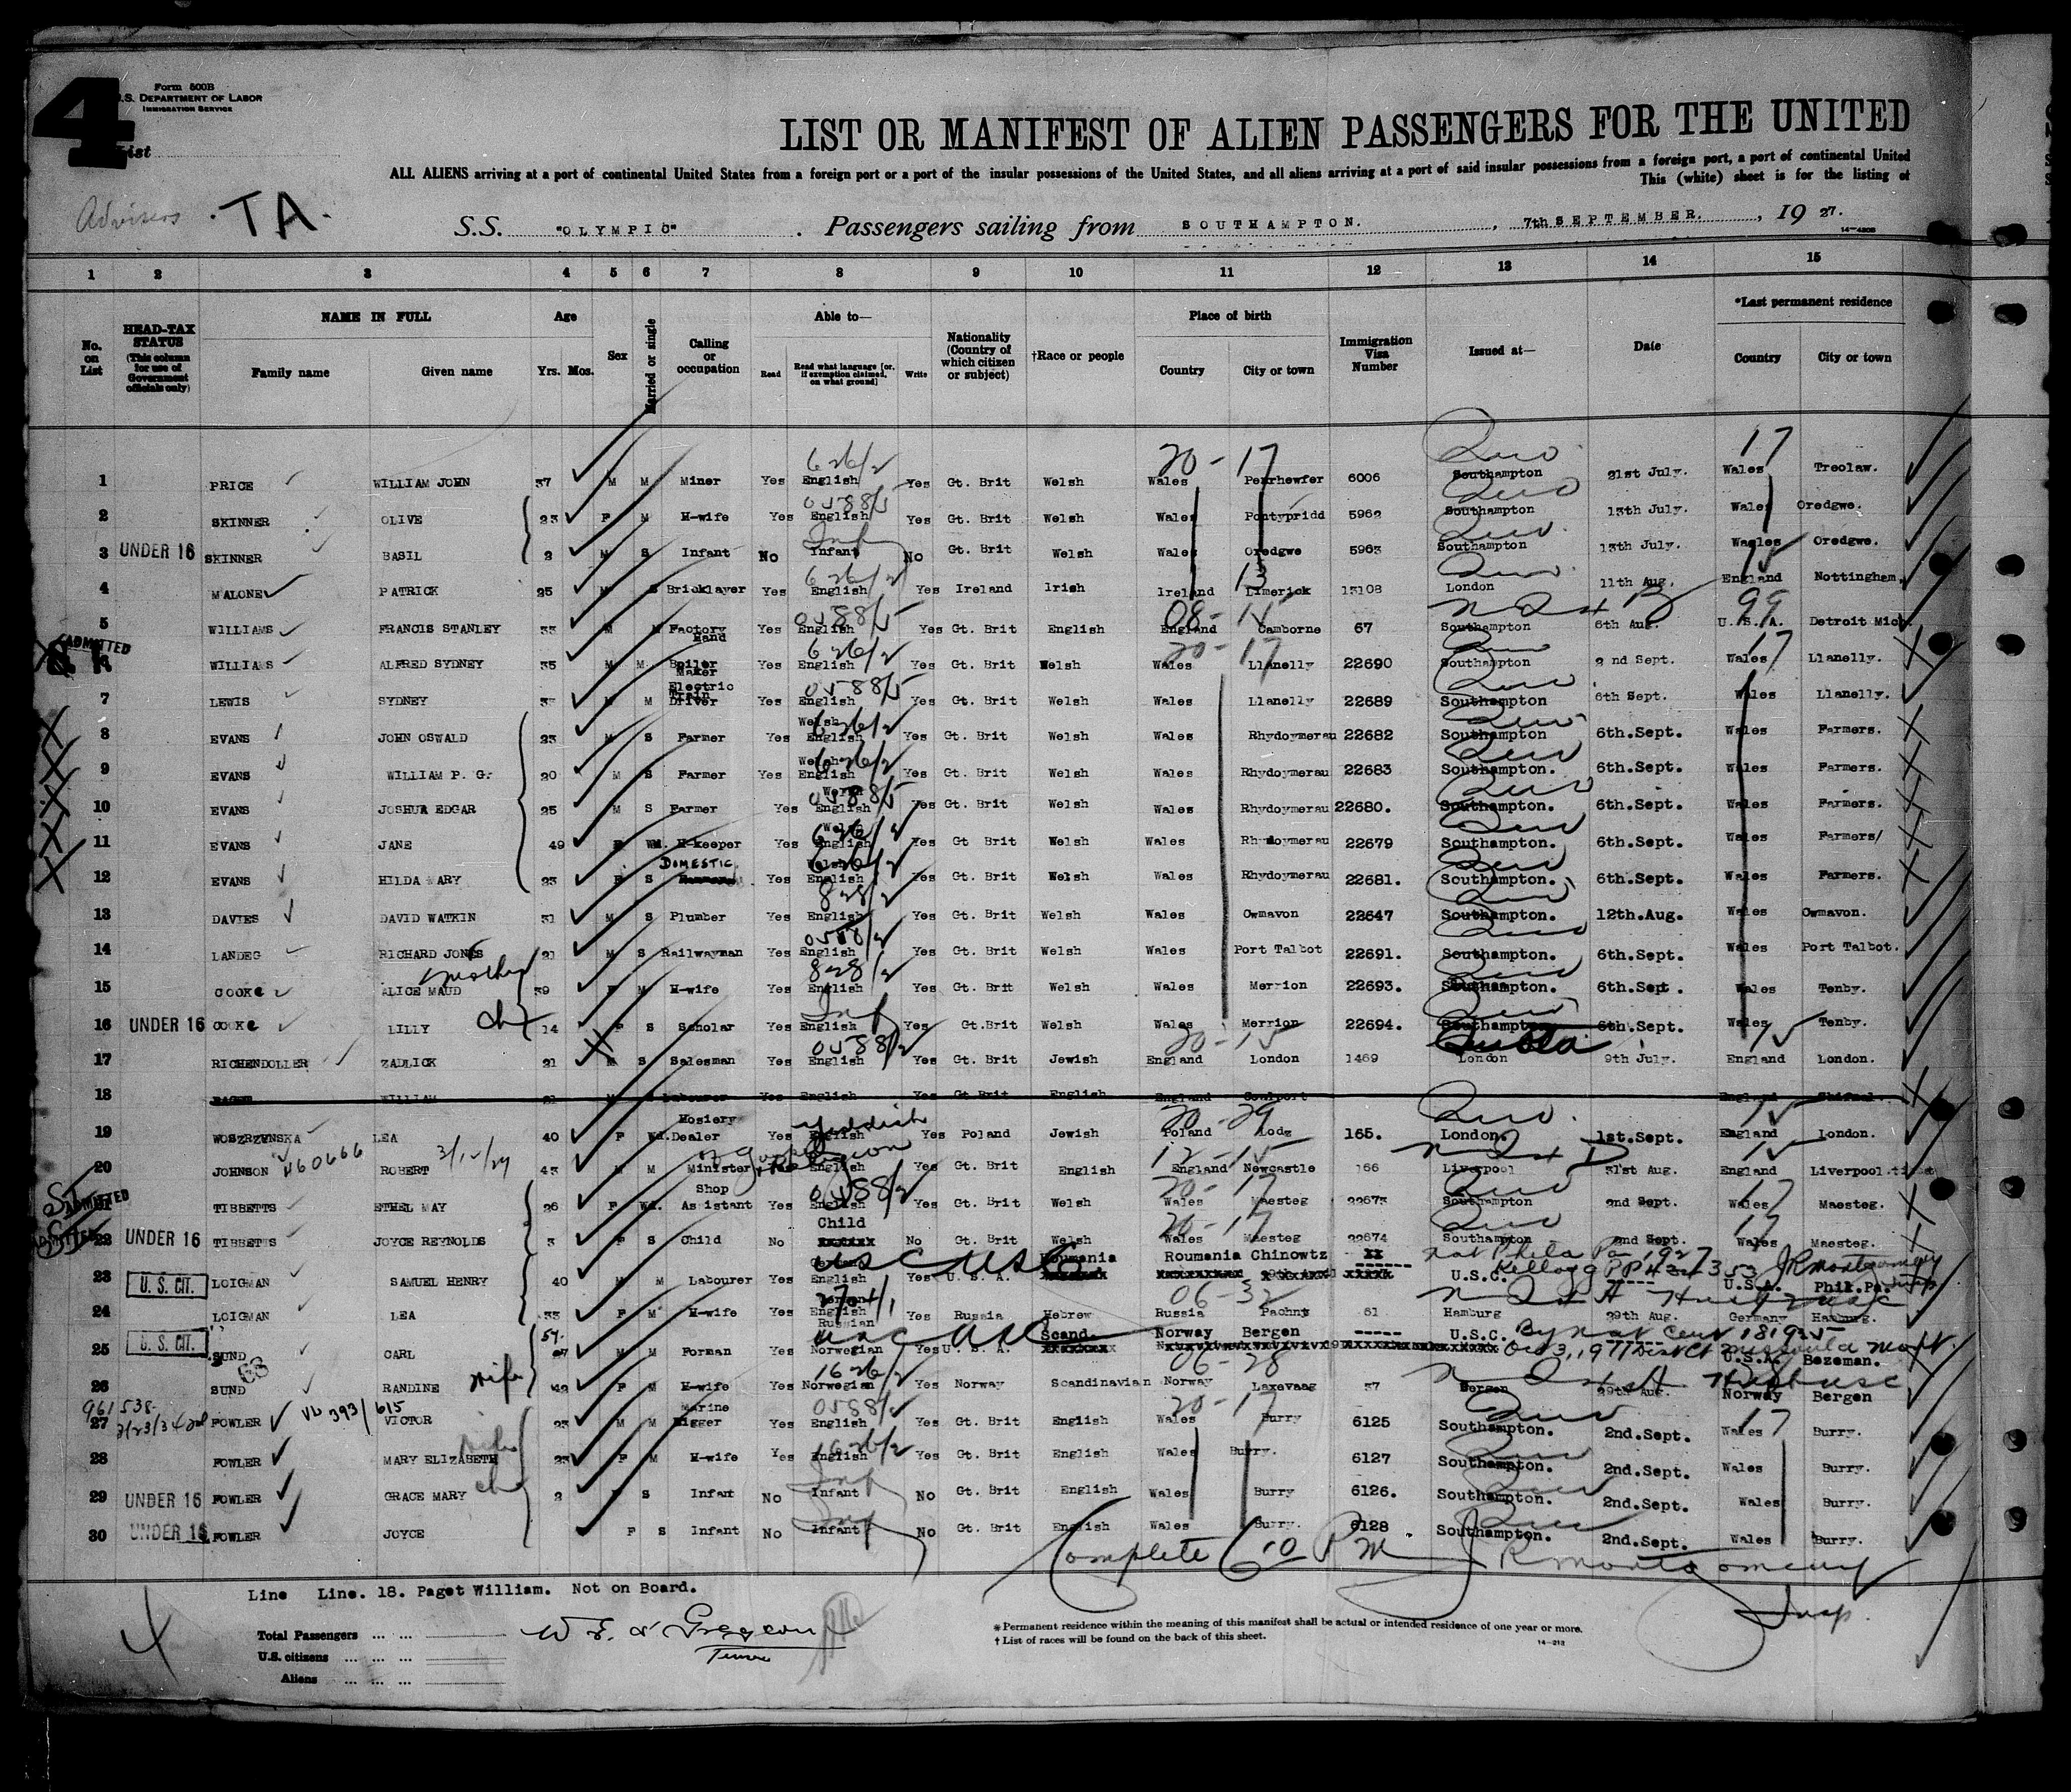 4
Form 500B
U.S. DEPARTMENT OF LABOR
IMMIGRATION SERVICE
List
LIST OR MANIFEST OF ALIEN PASSENGERS FOR THE UNITED
ALL ALIENS arriving at a port of continental United States from a foreign port or a port of the insular possessions of the United States, and all aliens arriving at a port of said insular possessions from a foreign port, a port of continental United
This (white) sheet is for the listing of
Advisers . TA.
S.S. "OLYMPIC" . Passengers sailing from SOUTHAMPTON. , 7th SEPTEMBER. , 19 27.
1 2 3 4 5 6 7 8 9 10 11 12 13 14 15
No. on List
HEAD-TAX STATUS (This column for use of Government officials only)
NAME IN FULL
Family name Given name
Age
Yrs. Mos.
Sex
Married or single
Calling or occupation
Able to—
Read Read what language [or, if exemption claimed, on what ground] Write
Nationality (Country of which citizen or subject)
†Race or people
Place of birth
Country City or town
Immigration Visa Number
Issued at—
Date
*Last permanent residence
Country City or town
1 PRICE WILLIAM JOHN 37 M M Miner Yes English Yes Gt. Brit Welsh Wales Penrhewfer 6006 Southampton 21st July. Wales Treolaw.
2 SKINNER OLIVE 23 F M H-wife Yes English Yes Gt. Brit Welsh Wales Pontypridd 5962 Southampton 13th July. Wales Oredgwe.
3 UNDER 16 SKINNER BASIL 2 M S Infant No Infant No Gt. Brit Welsh Wales Oredgwe 5963 Southampton 13th July. Wagles Oredgwe.
4 MALONE PATRICK 25 M S Bricklayer Yes English Yes Ireland Irish Ireland Limerick 13108 London 11th Aug. England Nottingham.
5 WILLIAMS FRANCIS STANLEY 33 M M Factory Hand Yes English Yes Gt. Brit English England Camborne 67 Southampton 6th Aug. U.S.A. Detroit Mich.
ADMITTED
6 WILLIAMS ALFRED SYDNEY 35 M M. Boiler Maker Yes English Yes Gt. Brit Welsh Wales Llanelly 22690 Southampton 2nd Sept. Wales Llanelly.
7 LEWIS SYDNEY M M Electric Train Driver Yes English Yes Gt. Brit Welsh Wales Llanelly 22689 Southampton 6th Sept. Wales Llanelly.
8 EVANS JOHN OSWALD 23 M S Farmer Yes Welsh English Yes Gt. Brit Welsh Wales Rhydoymerau 22682 Southampton 6th.Sept. Wales Farmers.
9 EVANS WILLIAM P. G. 20 M S Farmer Yes Welsh English Yes Gt. Brit Welsh Wales Rhydoymerau 22683 Southampton. 6th.Sept. Wales Farmers.
10 EVANS JOSHUA EDGAR 25 M S Farmer Yes English Yes Gt. Brit Welsh Wales Rhydoymerau 22680. Southampton. 6th.Sept. Wales Farmers.
11 EVANS JANE 49 F Wd. H-keeper Yes Welsh English Yes Gt Brit Welsh Wales Rhydoymerau 22679 Southampton. 6th.Sept. Wales Farmers/
12 EVANS HILDA MARY 23 F S DOMESTIC Yes Welsh English Yes Gt. Brit Welsh Wales Rhydoymerau 22681. Southampton. 6th.Sept. Wales Farmers.
13 DAVIES DAVID WATKIN 31 M S Plumber Yes English Yes Gt. Brit Welsh Wales Owmavon 22647 Southampton. 12th.Aug. Wales Owmavon.
14 LANDEG RICHARD JONES 21 M S Railwayman Yes English Yes Gt. Brit Welsh Wales Port Talbot 22691. Southampton. 6th.Sept. Wales Port Talbot.
15 COOKe ALICE MAUD mother 39 F M H-wife Yes English Yes Gt. Brit Welsh Wales Merrion 22693. Southampton. 6th.Sept. Wales Tenby.
16 UNDER 16 COOKe LILLY ch 14 F S Scholar Yes English Yes Gt.Brit Welsh Wales Merrion 22694. Southampton 6th.Sept. Wales Tenby.
17 RICHENDOLLER ZADLICK 21 M S Salesman Yes English Yes Gt. Brit Jewish England London 1469 London 9th July. England London.
18 PAGET WILLIAM 21 M S Labourer Yes English Yes Gt Brit English England England
19 WOSZRZENSKA LEA 40 F Wd. Hosiery Dealer Yes Yiddish English Yes Poland Jewish Poland Lodz 165. London. 1st.Sept. England London.
20 JOHNSON 460666 ROBERT 43 M M Minister of Gospel Religion Yes English Yes Gt. Brit English England Newcastle 166 Liverpool 31st Aug. England Liverpool.
ADMITTED
21 TIBBETTS ETHEL MAY 26 F Wd. Shop Assistant Yes English Yes Gt. Brit Welsh Wales Maesteg 22673 Southampton 2nd Sept. Wales Maesteg.
22 UNDER 16 TIBBETTS JOYCE REYNOLDS 3 F S Child No Child No Gt. Brit Welsh Wales Maesteg 22674 Southampton 2nd Sept. Wales Maesteg.
23 U. S. CIT. LOIGMAN SAMUEL HENRY 40 M M Labourer Yes German English USC USC Yes U.S.A. Roumania Roumania Chinowtz U.S.C. Nat Phila Pa 1927 Kellogg PP U.S.A. Phil.Pa. JRMontgomery
24 LOIGMAN LEA 33 F M H-wife Yes German English Russian Yes Russia Hebrew Russia Pachny 61 Hamburg 29th Aug. Germany Hamburg.
25 U. S. CIT. SUND CARL 57. M M Forman Yes Norwegian USC USC Yes U.S.A. Scand. Norway Bergen U.S.C. By nat Cert 181935 Oct 3, Dist Ct Missoula Mont. U.S.A. Bozeman.
26 SUND RANDINE wife 49 F M H-wife Yes Norwegian Yes Norway Scandinavian Norway Laxevaag 37 Bergen 29th Aug. Norway Bergen
27 961538 FOWLER VICTOR 23 M M Marine Rigger Yes English Yes Gt. Brit English Wales Burry 6125 Southampton. 2nd.Sept. Wales Burry.
28 FOWLER MARY ELIZABETH wife 23 F M H-wife Yes English Yes Gt. Brit English Wales Burry. 6127 Southampton. 2nd.Sept. Wales Burry.
29 UNDER 16 FOWLER GRACE MARY ch 2 F S Infant No Infant No Gt. Brit English Wales Burry 6126. Southampton. 2nd.Sept. Wales Burry.
30 UNDER 16 FOWLER JOYCE F S Infant No Infant No Gt. Brit English Wales Burry. 6128 Southampton. 2nd.Sept. Wales Burry.
Complete 6:10 PM J R Montgomery
Insp.
Line Line. 18. Paget William. Not on Board.
Total Passengers ... ...
U.S. citizens ... ... ...
Aliens ... ... ...
* Permanent residence within the meaning of this manifest shall be actual or intended residence of one year or more.
† List of races will be found on the back of this sheet.
14—212